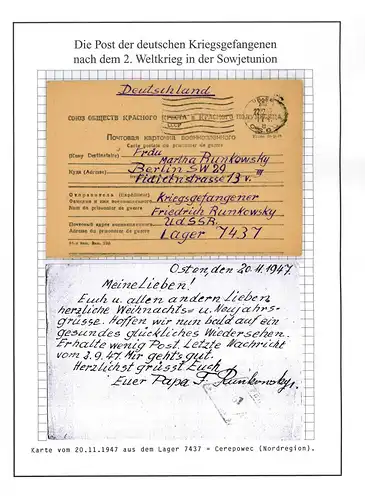 Die Post der deutschen Kriegsgefangenen
nach dem 2. Weltkrieg in der Sowjetunion
Deutschland
СССР
СОЮЗ ОБЩЕСТВ КРАСНОГО КРЕСТА и КРАСНОГО
Почтовая карточка военнопленного
Carte postale du prisonnier de guerre
Кому (Destinataire) Frau
Martha Runkowsky
Куда (Adresse) Berlin SW 29
Fidicinstrasse 13 v. III
Отправитель (Expéditeur)
Фамилия и имя военнопленного Kriegsgefangener
Nom du prisonnier de guerre Friedrich Runkowsky
Почтовый адрес военнопленного UdSSR.
Adresse du prisonnier de guerre Lager 7437
Osten, den 20.11.1947.
Meine Lieben!
Euch u. allen andern Lieben
herzliche Weihnachts= u. Neujahrs-
grüsse. Hoffen wir nun bald auf ein
gesundes glückliches Wiedersehen.
Erhalte wenig Post. Letzte Nachricht
vom 3.9.47. Mir geht's gut.
Herzlichst grüsst Euch
Euer Papa F. Runkowsky.
Karte vom 20.11.1947 aus dem Lager 7437 = Cerepowec (Nordregion).